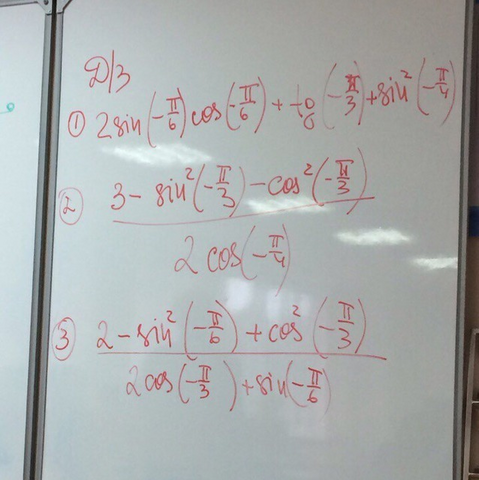 Д/З
① 2sin(-π/6)cos(-π/6)+tg(-π/3)+sin²(-π/4)
② (3-sin²(-π/3)-cos²(-π/3))/(2cos(-π/4))
③ (2-sin²(-π/6)+cos²(-π/3))/(2cos(-π/3)+sin(-π/6))